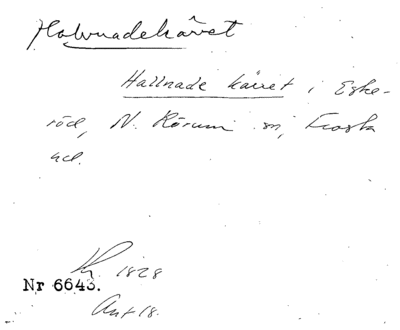 Halvnadekärret
Hallnade kärret i Eske-
röd, N. Rörum sn, Frosta
hd.
1828
Nr 6643.
Ant 18.